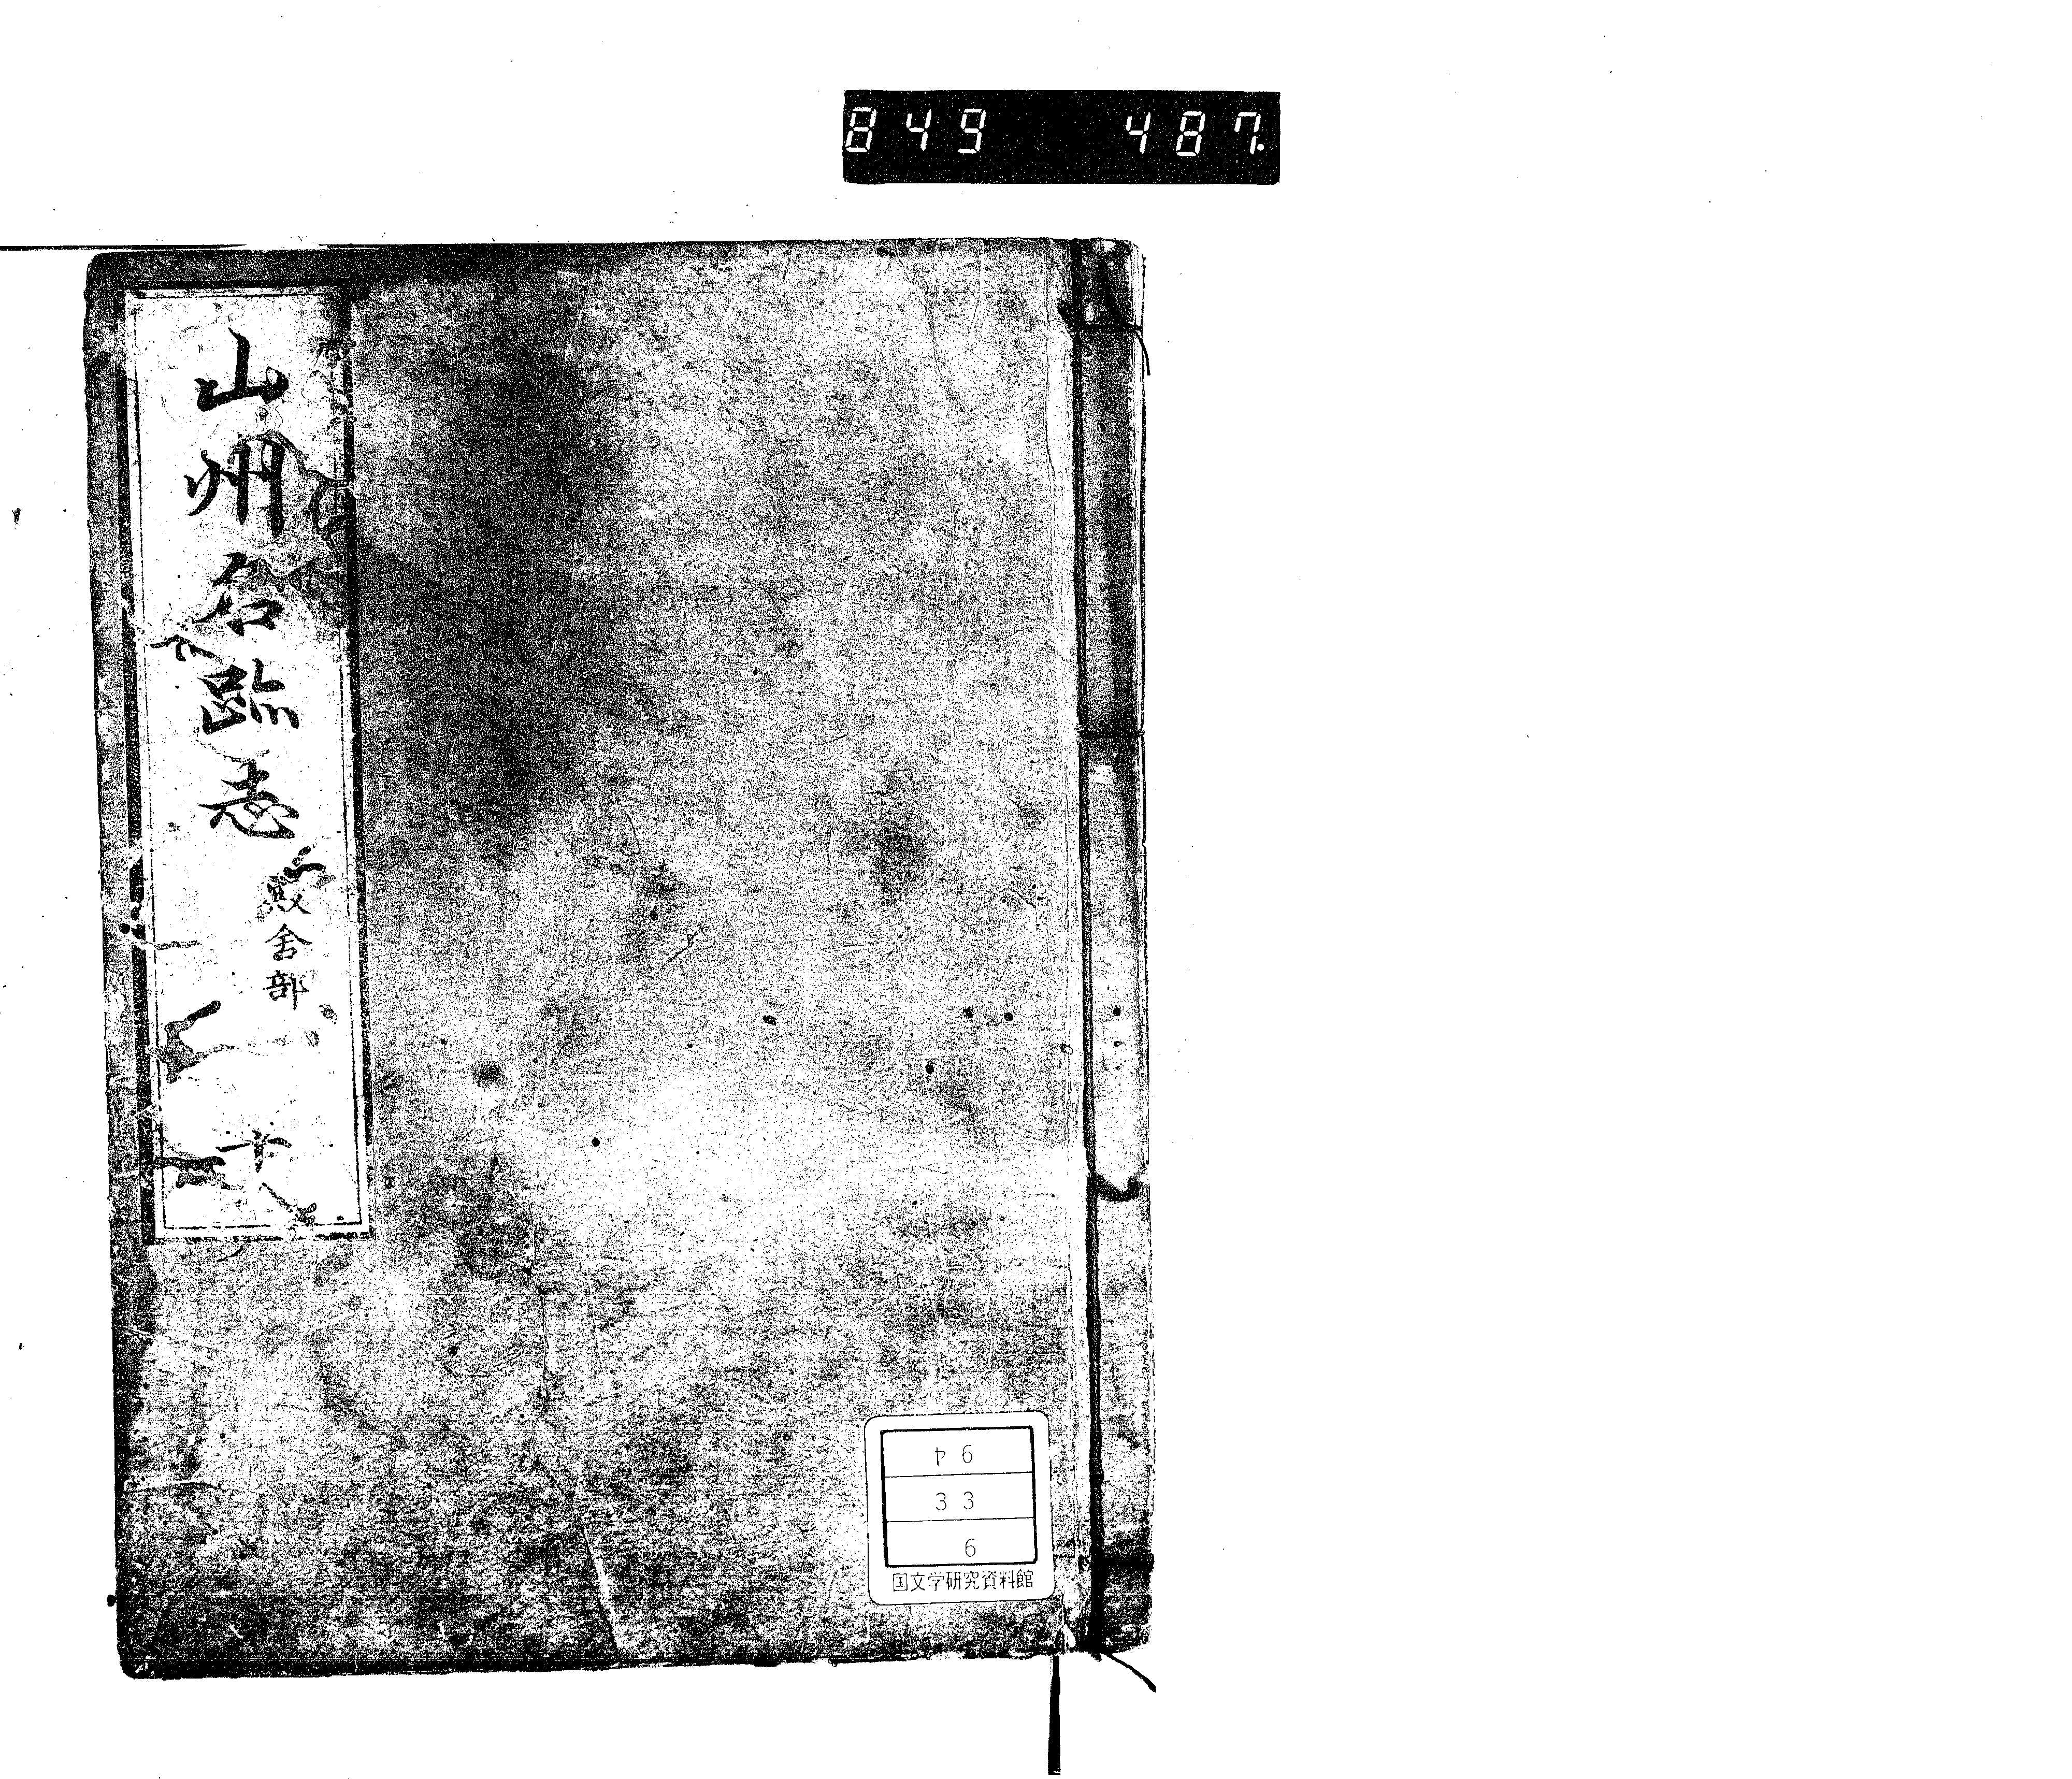 849 487.
山州名跡志
殿舎部
十八
ヤ6
33
6
国文学研究資料館